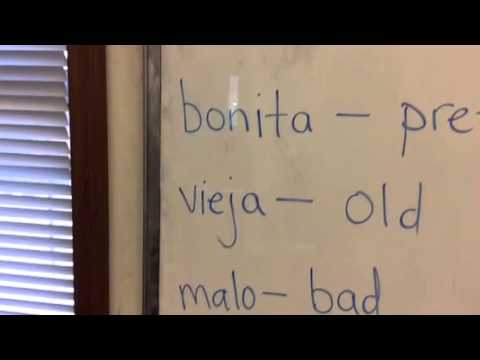 bonita – pre
vieja – old
malo – bad